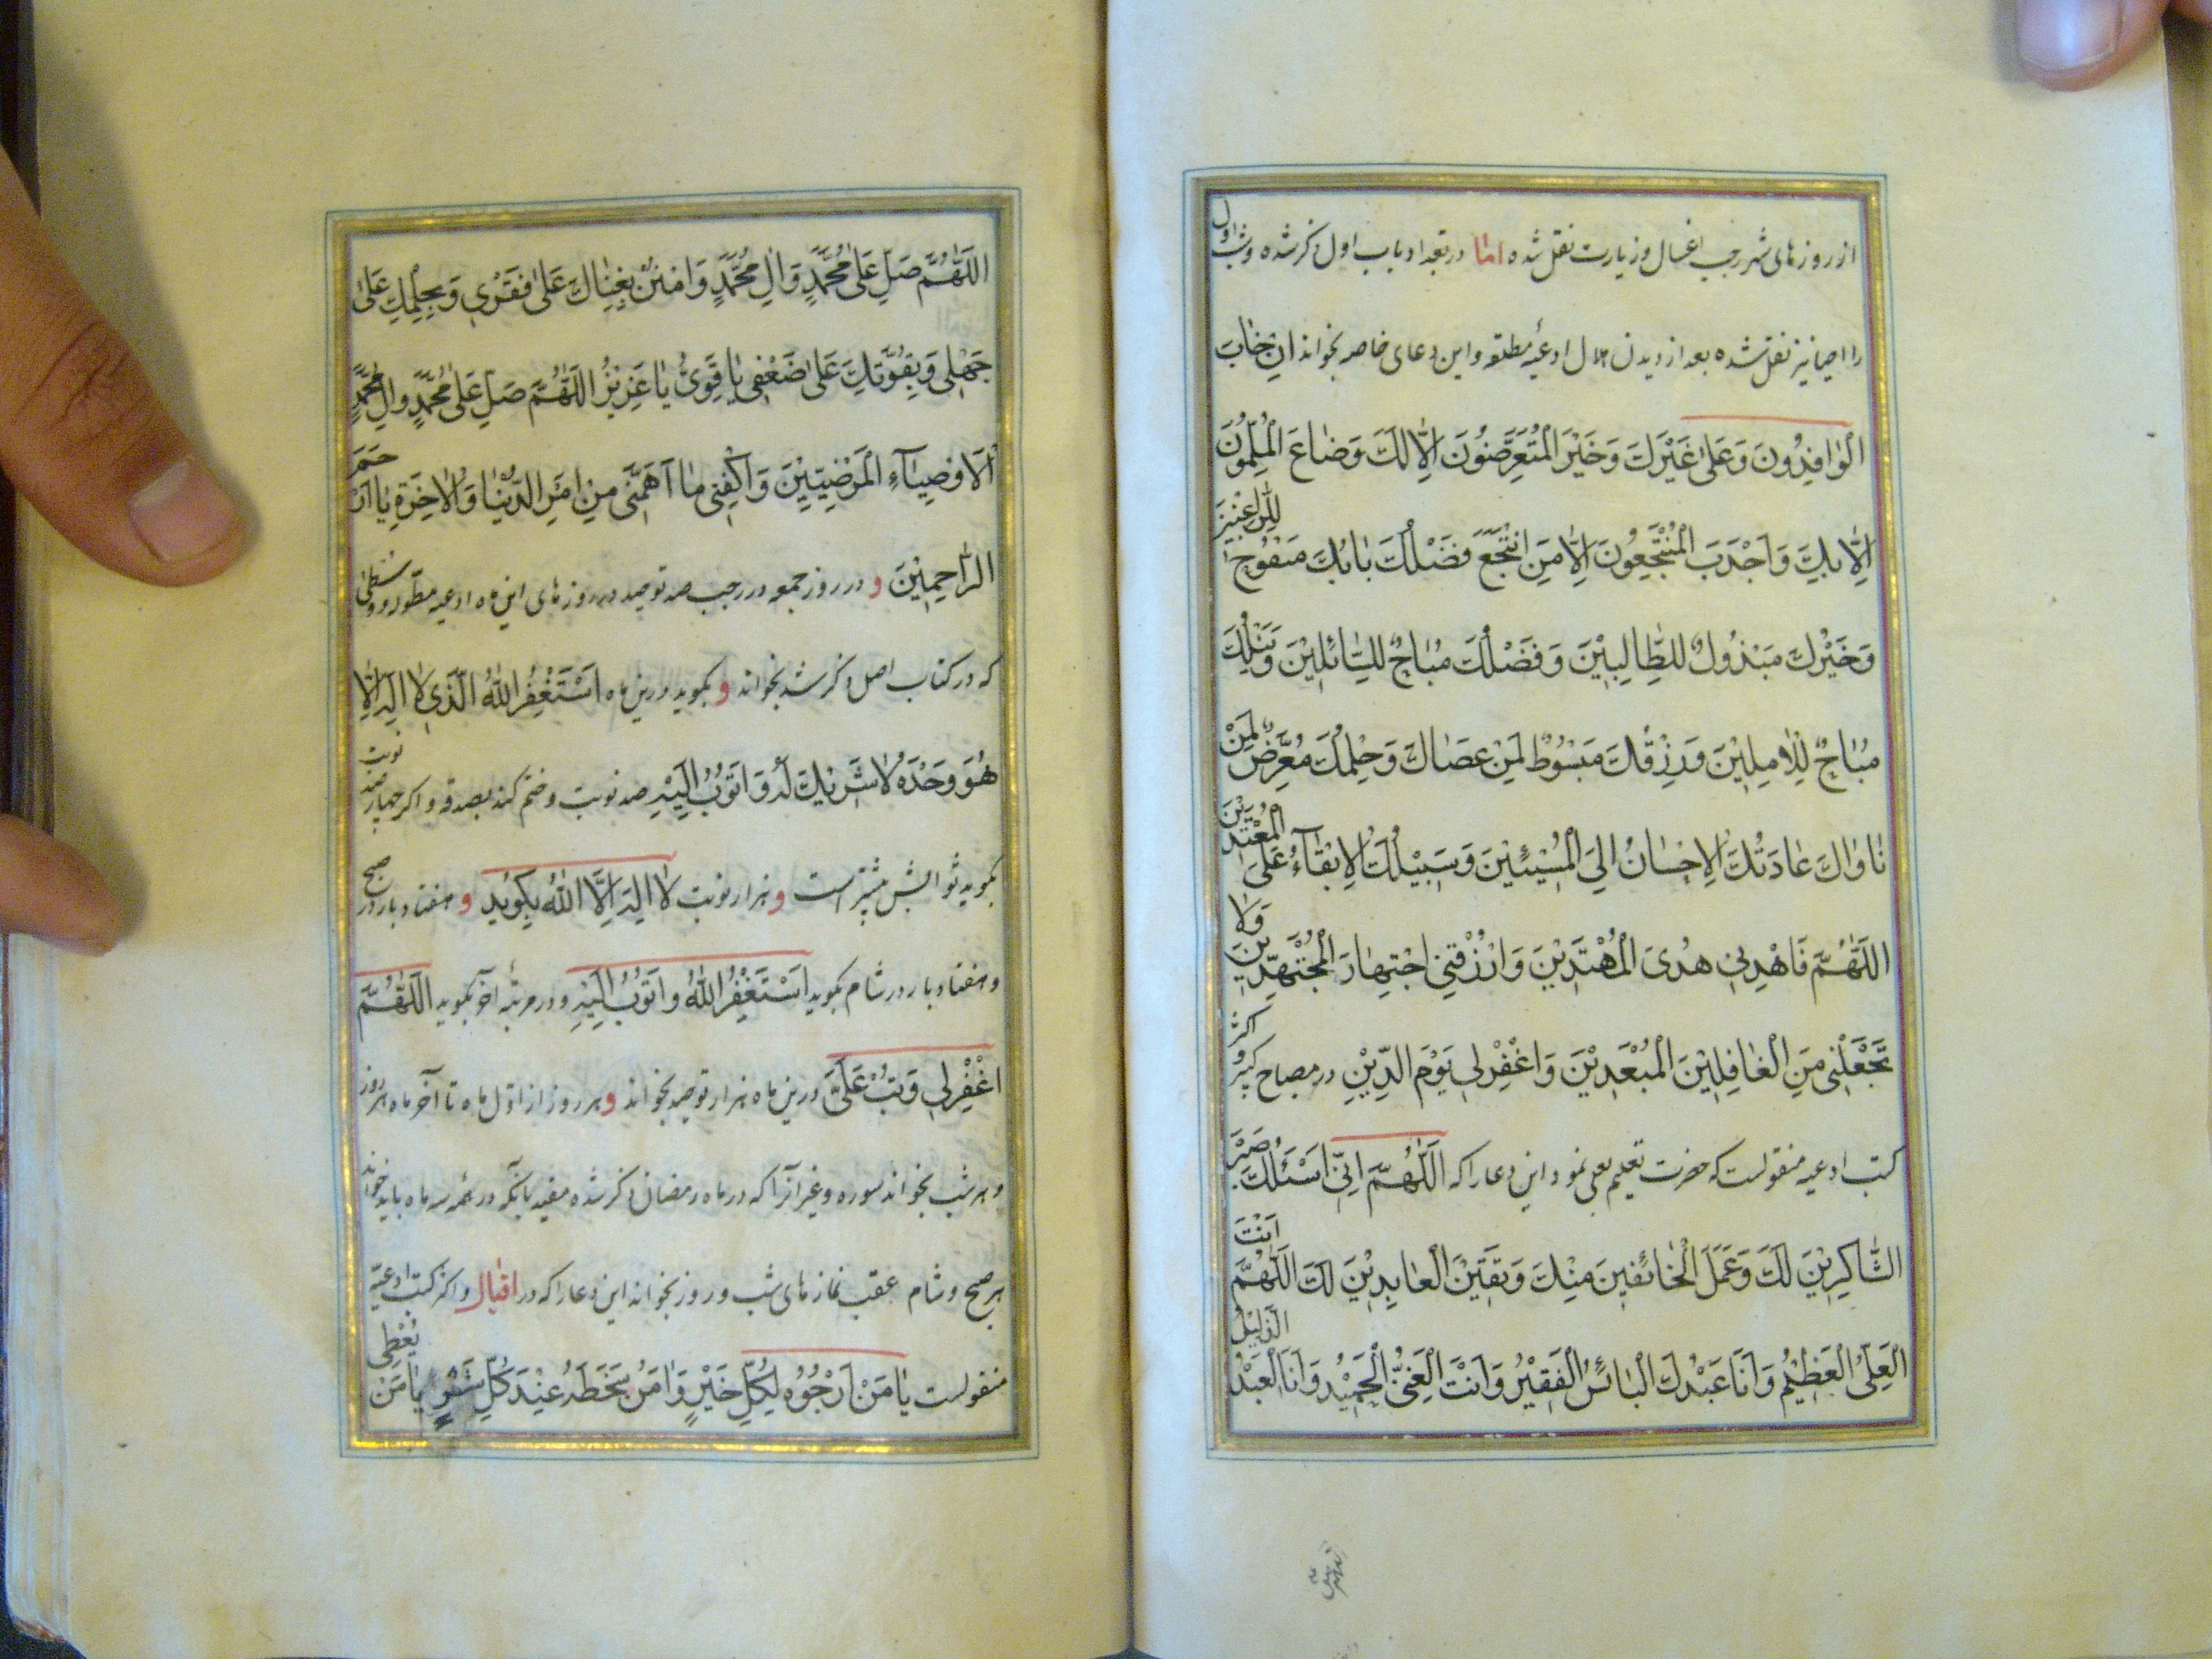 از روزهای شهر رجب اغسال و زیارت نقل شده اما در تعداد باب اول ذکر شده و شب اول
را احیا نیز نقل شده بعد از دیدن هلال ادعیهٔ مطلقه و این دعای خاصه بخواند اِنْ خٰابَ
الْوٰافِدُونَ وَعَلیٰ غَيْرَكَ وَخَيْرَ الْمُتَعَرِّضُونَ اِلّٰا لَكَ وَضٰاعَ الْمُلِمُّونَ
اِلّٰا بِكَ وَاَجْدَبَ الْمُنْتَجِعُونَ اِلّٰا مَنِ انْتَجَعَ فَضْلَكَ بٰابُكَ مَفْتُوحٌ لِلرّٰاغِبِيْنَ
وَخَيْرُكَ مَبْذُولٌ لِلطّٰالِبِيْنَ وَفَضْلُكَ مُبٰاحٌ لِلسّٰائِلِيْنَ وَنَيْلُكَ
مُبٰاحٌ لِلْاٰمِلِيْنَ وَرِزْقُكَ مَبْسُوطٌ لِمَنْ عَصٰاكَ وَحِلْمُكَ مُعَرَّضٌ لِمَنْ
نٰاوٰاكَ عٰادَتُكَ الْاِحْسٰانُ اِلَى الْمُسِيْئِيْنَ وَسَبِيْلُكَ الْاِبْقٰآءُ عَلَى الْمُعْتَدِيْنَ
اَللّٰهُمَّ فَاهْدِنِي هُدَى الْمُهْتَدِيْنَ وَارْزُقْنِي اجْتِهٰادَ الْمُجْتَهِدِيْنَ وَلٰا
تَجْعَلْنِي مِنَ الْغٰافِلِيْنَ الْمُبْعَدِيْنَ وَاغْفِرْلِي يَوْمَ الدِّيْنِ در مصباح کبیر و اکثر
کتب ادعیه منقولست که حضرت تعلیم معلی نمود این دعا را که اَللّٰهُمَّ اِنِّي اَسْئَلُكَ صَبْرَ
الشّٰاكِرِيْنَ لَكَ وَعَمَلَ الْخٰائِفِيْنَ مِنْكَ وَيَقِيْنَ الْعٰابِدِيْنَ لَكَ اَللّٰهُمَّ اَنْتَ
الْعَلِيُّ الْعَظِيْمُ وَاَنَا عَبْدُكَ الْبٰائِسُ الْفَقِيْرُ وَاَنْتَ الْغَنِيُّ الْحَمِيْدُ وَاَنَا الْعَبْدُ الذَّلِيْلُ
اَللّٰهُمَّ صَلِّ عَلیٰ مُحَمَّدٍ وَاٰلِ مُحَمَّدٍ وَامْنُنْ بِغِنٰاكَ عَلیٰ فَقْرِي وَبِحِلْمِكَ عَلیٰ
جَهْلِي وَبِقُوَّتِكَ عَلیٰ ضَعْفِي يٰا قَوِيُّ يٰا عَزِيْزُ اَللّٰهُمَّ صَلِّ عَلیٰ مُحَمَّدٍ وَاٰلِ مُحَمَّدٍ
اَلْاَوْصِيٰآءِ الْمَرْضِيِّيْنَ وَاكْفِنِي مٰا اَهَمَّنِي مِنْ اَمْرِ الدُّنْيٰا وَالْاٰخِرَةِ يٰا اَرْحَمَ
الرّٰاحِمِيْنَ و در روز جمعه در رجب صد توحید در روزهای این ماه ادعیه مطوله و وسطی
که در کتاب اصل ذکر شد بخواند و بگوید درین ماه اَسْتَغْفِرُ اللّٰهَ الَّذِي لٰا اِلٰهَ اِلّٰا
هُوَ وَحْدَهُ لٰا شَرِيْكَ لَهُ وَاَتُوْبُ اِلَيْهِ صد نوبت و ختم کند بصدقه و اگر چهارصد نوبت
بگوید ثوابش بیشتر است و هزار نوبت لٰا اِلٰهَ اِلَّا اللّٰهُ بگوید و هفتاد بار در صبح
و هفتاد بار در شام بگوید اَسْتَغْفِرُ اللّٰهَ وَاَتُوْبُ اِلَيْهِ و در مرتبه آخر بگوید اَللّٰهُمَّ
اغْفِرْلِي وَتُبْ عَلَيَّ درین ماه هزار توحید بخواند و هر روز از اوّل ماه تا آخر ماه هر روز
و هر شب بخواند سوره و غیر آنرا که در ماه رمضان ذکر شده مفید بآنکه در همه سه ماه باید خواند
هر صبح و شام عقب نمازهای شب و روز بخواند این دعا را که در اقبال و اکثر کتب ادعیه
منقولست يٰا مَنْ اَرْجُوْهُ لِكُلِّ خَيْرٍ وَاٰمَنُ سَخَطَهُ عِنْدَ كُلِّ شَرٍّ يٰا مَنْ يُعْطِي